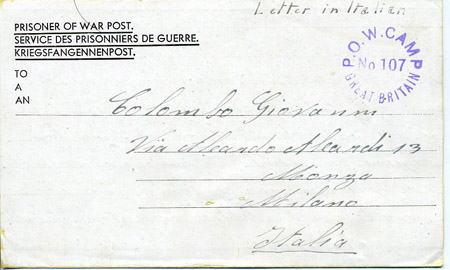 Letter in Italian
PRISONER OF WAR POST.
SERVICE DES PRISONNIERS DE GUERRE.
KRIEGSFANGENNENPOST.
P.O.W. CAMP
No 107
GREAT BRITAIN
TO
A
AN
Colombo Giovanni
Via Aleardo Aleardi 13
Monza
Milano
Italia